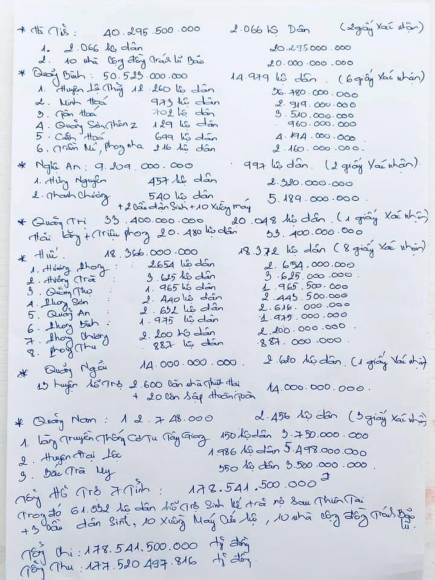 * Hà Tĩnh: 40.295.500.000 2.066 hộ Dân (2 giấy xác nhận)
1. 2.066 hộ dân 20.295.000.000
2. 10 nhà cộng đồng Tránh lũ Bão 20.000.000.000
* Quảng Bình: 50.523.000.000 14.979 hộ dân. (6 giấy xác nhận)
1. Huyện Lệ Thủy 12.260 hộ dân 36.780.000.000
2. Minh Hoá 973 hộ dân 2.919.000.000
3. Tân Hoá 702 hộ dân 3.510.000.000
4. Quảng Sơn Thôn 2 129 hộ dân 960.000.000
5. Cảnh Hoá 699 hộ dân 4.194.000.000
6. 216 hộ dân 2.160.000.000
* Nghệ An: 9.209.000.000 997 hộ dân. (2 giấy xác nhận)
1. Hưng Nguyên 457 hộ dân 2.320.000.000
2. Thanh Chương 540 hộ dân 5.189.000.000
+ 2 Cầu dân Sinh + 10 Xuồng máy
* Quảng Trị 33.400.000.000 20.048 hộ dân (1 giấy xác nhận)
Hải Lăng + Triệu phong 20.480 hộ dân 33.400.000.000
* Huế: 18.366.000.000 18.372 hộ dân (8 giấy xác nhận)
1. Hương Phong: 2654 hộ dân 2.654.000.000
2. Hương Trà: 3.625 hộ dân 3.625.000.000
3. Quảng Thọ 1.965 hộ dân 1.965.500.000
4. Phong Sơn 2.440 hộ dân 2.443.500.000
5. Quảng An 2.632 hộ dân 2.616.000.000
6. Phong Bình: 1.975 hộ dân 1.975.000.000
7. Phong Chương 2.200 hộ dân 2.200.000.000
8. Phong Thu 887 hộ dân 887.000.000
* Quảng Ngãi 14.000.000.000 2.620 hộ dân (1 giấy xác nhận)
13 huyện hỗ Trợ 2.600 Căn nhà Thiệt hại 14.000.000.000
+ 20 Căn Sập Hoàn Toàn
* Quảng Nam: 12.748.000 2.456 hộ dân (3 giấy xác nhận)
1. Làng Truyền Thống Cơ Tu Tây Giang 150 hộ dân 3.750.000.000
2. Huyện Đại Lộc 1986 hộ dân 5.498.000.000
3. Bắc Trà My 350 hộ dân 3.500.000.000
Tổng Hỗ Trợ 7 Tỉnh: 178.541.500.000
Trong đó 61.532 hộ dân hỗ Trợ Sinh Kế trả nợ Sau Thiên Tai
+ 3 Cầu dân Sinh, 10 Xuồng Máy Cứu hộ, 10 nhà cộng đồng Tránh Bão lũ
Tổng Chi: 178.541.500.000 tỷ đồng
Tổng Thu: 177.520.497.816 tỷ đồng.